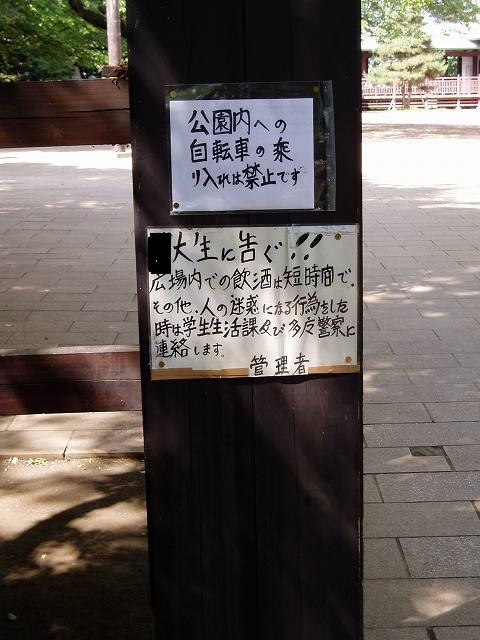 公園内への
自転車の乗
り入れは禁止です
大生に告ぐ!!
広場内での飲酒は短時間で。
その他、人の迷惑になる行為をした
時は学生生活課及び多摩警察に
連絡します。
管理者